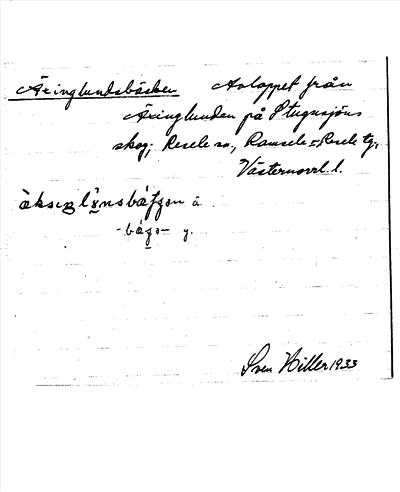 Äxinglundsbäcken Avloppet från
Äxinglunden på Stugusjöns
skog; Resele sn., Ramsele o. Resele tg.,
Västernorrl. l.
ä.
y.
Sven Hiller 1933